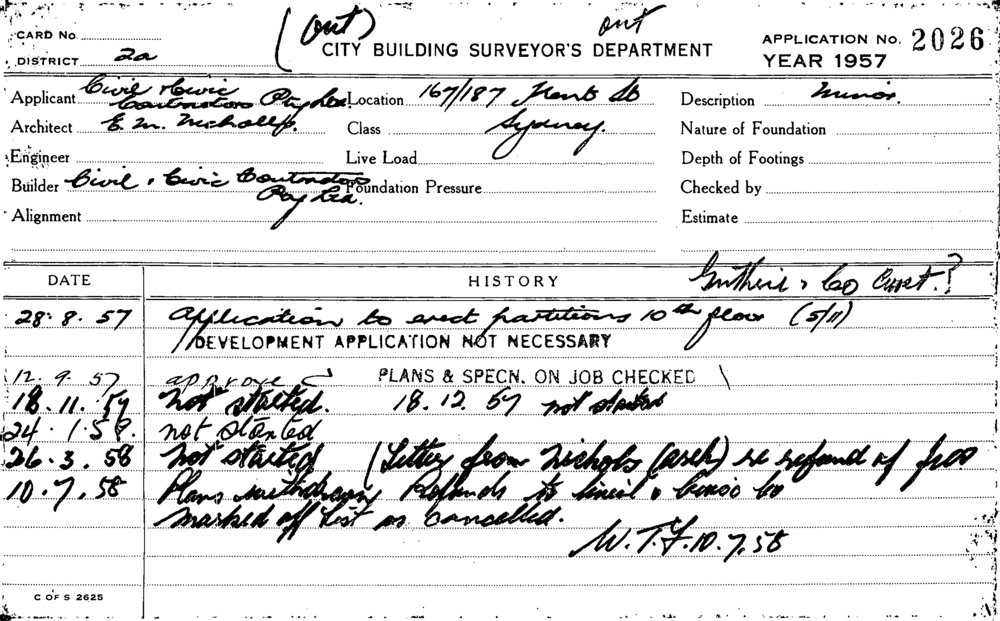 (out)
out
CARD No.
CITY BUILDING SURVEYOR'S DEPARTMENT
APPLICATION No. 2026
DISTRICT 2a
YEAR 1957
Applicant Civil & Civic Contractors Pty Ltd. Location 167/187 Kent St Sydney. Description Minor.
Architect E. M. Nicholls. Class Nature of Foundation
Engineer Live Load Depth of Footings
Builder Civil & Civic Contractors Pty Ltd. Foundation Pressure Checked by
Alignment Estimate
DATE HISTORY & Co ?
28.8.57 Application to erect partitions 10th floor (5/11)
DEVELOPMENT APPLICATION NOT NECESSARY
12.9.57 approved PLANS & SPECN. ON JOB CHECKED
18.11.57 not started. 18.12.57 not started
24.1.58. not started
26.3.58 not started (Letter from Nichols (arch) re refund of fees
10.7.58 Plans withdrawn Refunds to Civil & Civic Co
marked off list as cancelled.
W.T.F. 10.7.58
C OF S 2625